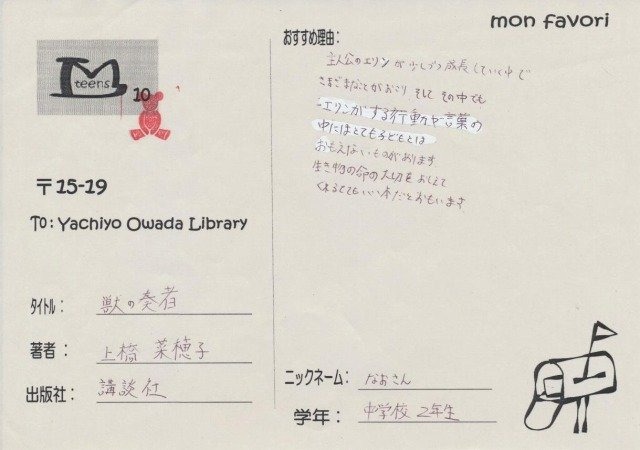 mon favori
teens
10
〒15-19
To: Yachiyo Owada Library
タイトル: 獣の奏者
著者: 上橋 菜穂子
出版社: 講談社
おすすめ理由:
主人公のエリンが少しずつ成長していく中で
さまざまなことがおこり そして その中でも
エリンがする行動や言葉の
中にはとても子どもとは
おもえないものがあります
生き物の命の大切をおしえて
くれるとてもいい本だとおもいます
ニックネーム: なおさん
学年: 中学校 2年生